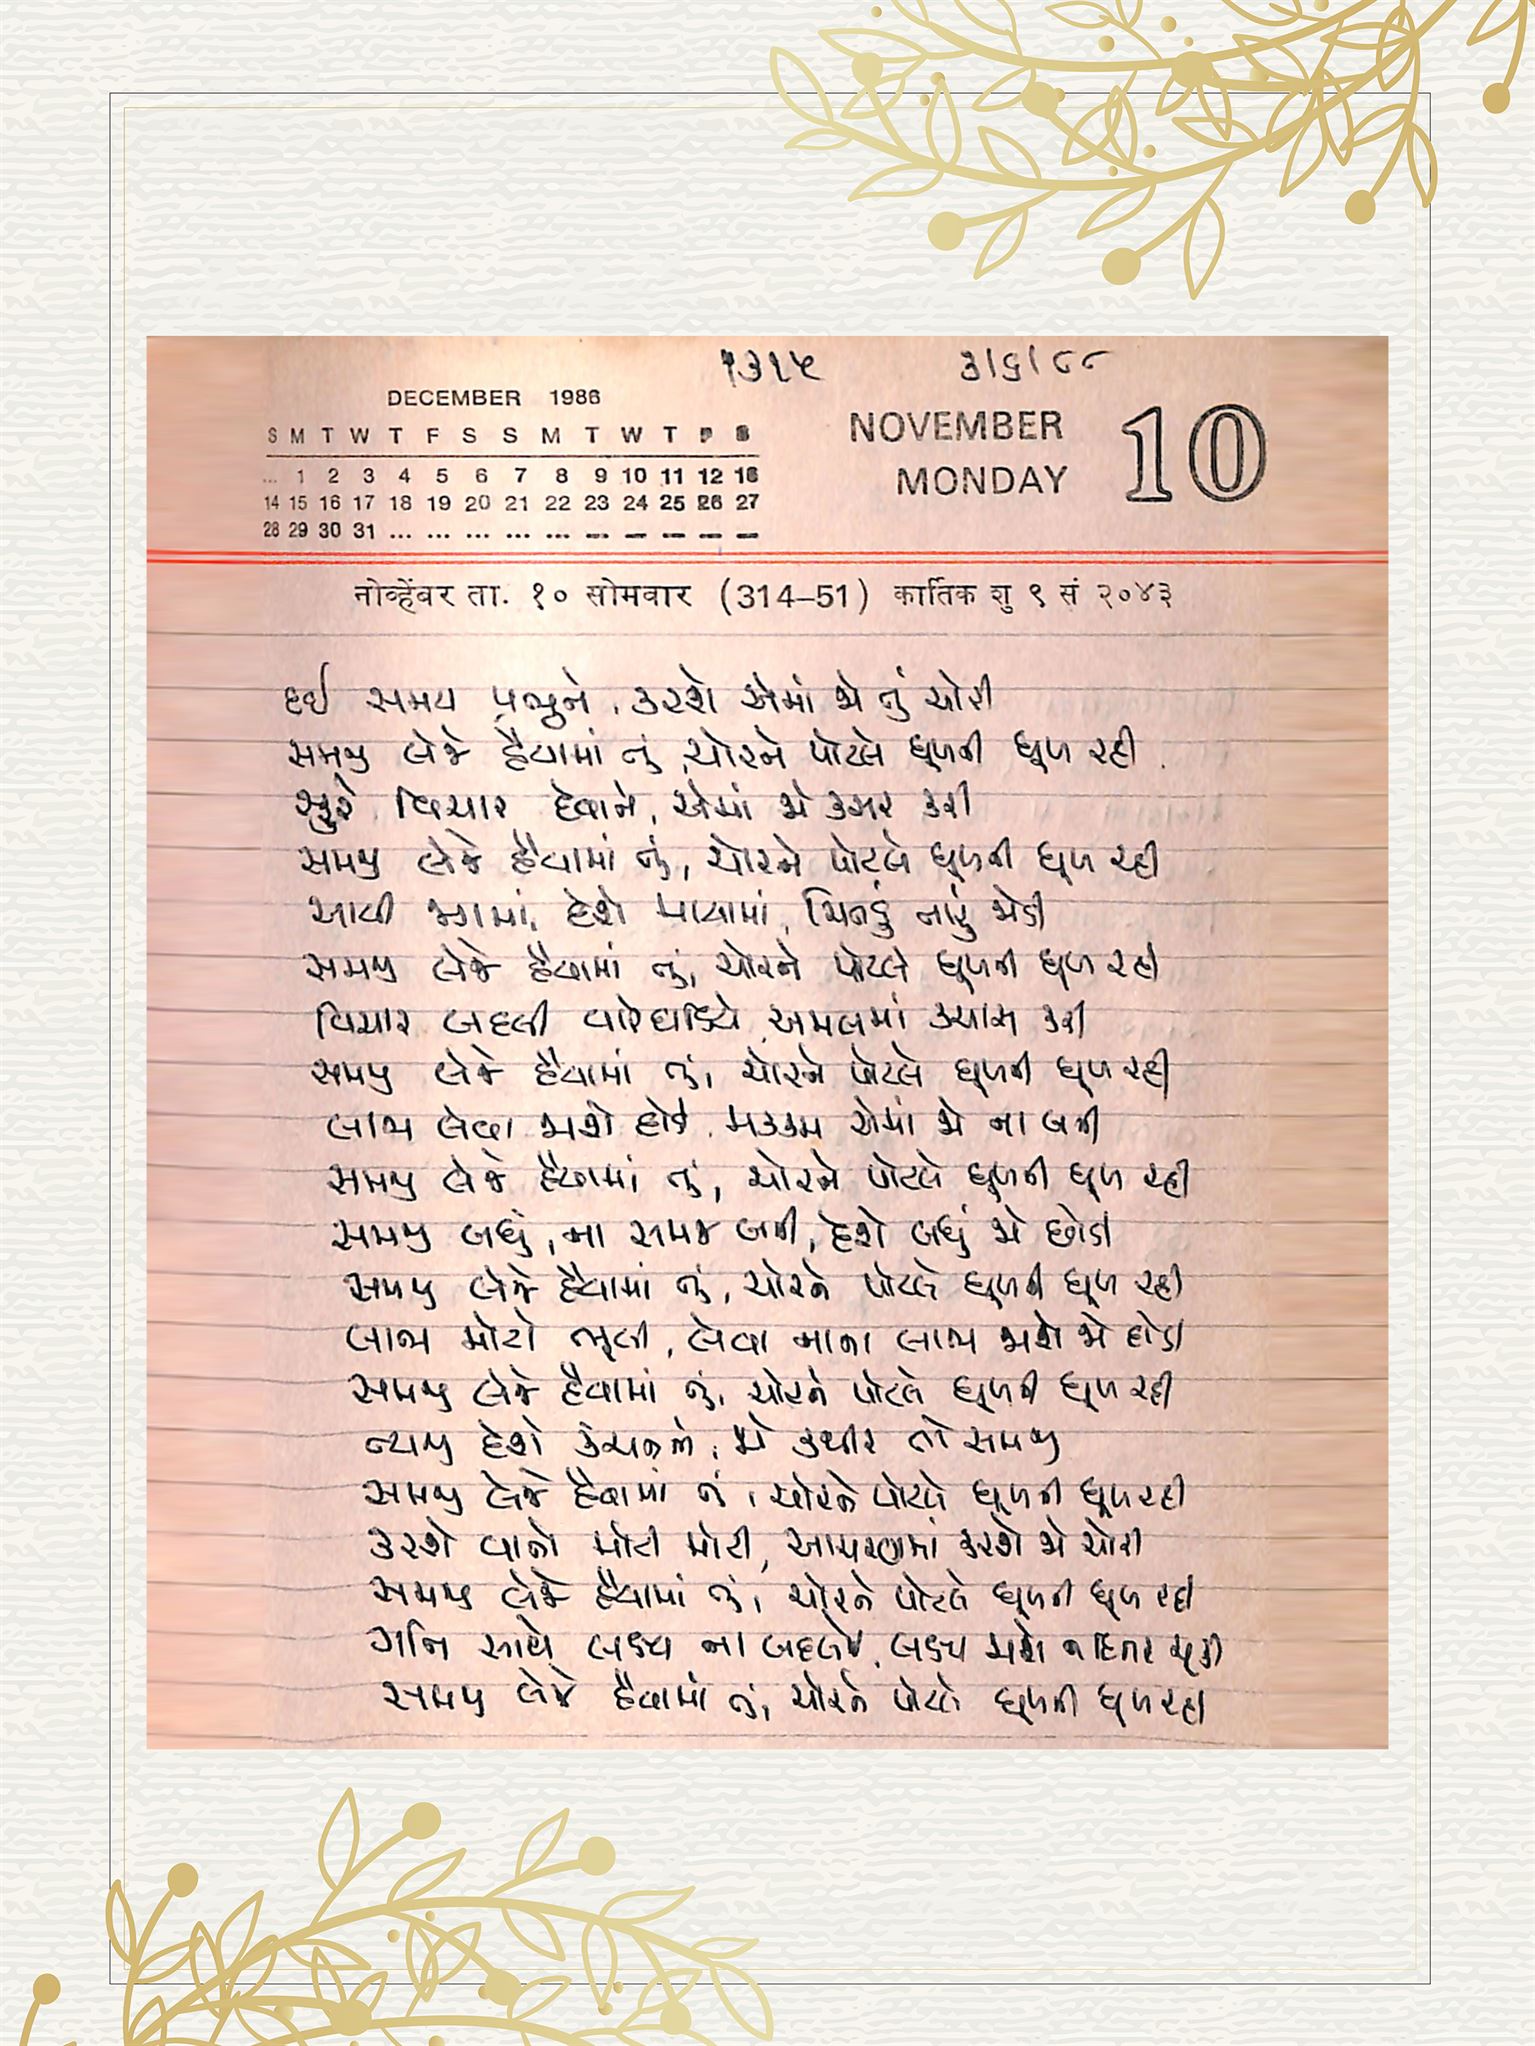 ૧૩૧૫ ૩/૬/૮૮
DECEMBER 1986
S M T W T F S S M T W T F S
... 1 2 3 4 5 6 7 8 9 10 11 12 13
14 15 16 17 18 19 20 21 22 23 24 25 26 27
28 29 30 31 ... ... ... ... ... ... ... ... ... ...
NOVEMBER
MONDAY
10
नोव्हेंबर ता. १० सोमवार (314–51) कार्तिक शु ९ सं २०४३
દઈ સમય પ્રભુને, કરશે એમાં જો તું ચોરી
સમજી લેજે હૈયામાં તું, ચોરને પોટલે ધૂળની ધૂળ રહી
વિચાર દેવાને, એમાં જો કસર કરી
સમજી લેજે હૈયામાં તું, ચોરને પોટલે ધૂળની ધૂળ રહી
આવી જગમાં, દેશે માયામાં, ચિત્તડું તારું જોડી
સમજી લેજે હૈયામાં તું, ચોરને પોટલે ધૂળની ધૂળ રહી
વિચાર બદલી વારેઘડિયે, અમલમાં કચાશ કરી
સમજી લેજે હૈયામાં તું, ચોરને પોટલે ધૂળની ધૂળ રહી
લાભ લેવા જાશે દોડી, મક્કમ એમાં જો ના બની
સમજી લેજે હૈયામાં તું, ચોરને પોટલે ધૂળની ધૂળ રહી
સમજી બધું, ના સમજ બની, દેશે બધું જો છોડી
સમજી લેજે હૈયામાં તું, ચોરને પોટલે ધૂળની ધૂળ રહી
લાભ મોટો ભૂલી, લેવા નાના લાભ જાશે જો દોડી
સમજી લેજે હૈયામાં તું, ચોરને પોટલે ધૂળની ધૂળ રહી
ત્યજી દેશે કંચનને, જો કથીર તો સમજી
સમજી લેજે હૈયામાં તું, ચોરને પોટલે ધૂળની ધૂળ રહી
કરશે વાતો મોટી મોટી, આચરણમાં કરશે જો ચોરી
સમજી લેજે હૈયામાં તું, ચોરને પોટલે ધૂળની ધૂળ રહી
ગતિ સાથે લક્ષ્ય ના બદલજે, લક્ષ્ય જાશે નહિતર ચૂકી
સમજી લેજે હૈયામાં તું, ચોરને પોટલે ધૂળની ધૂળ રહી